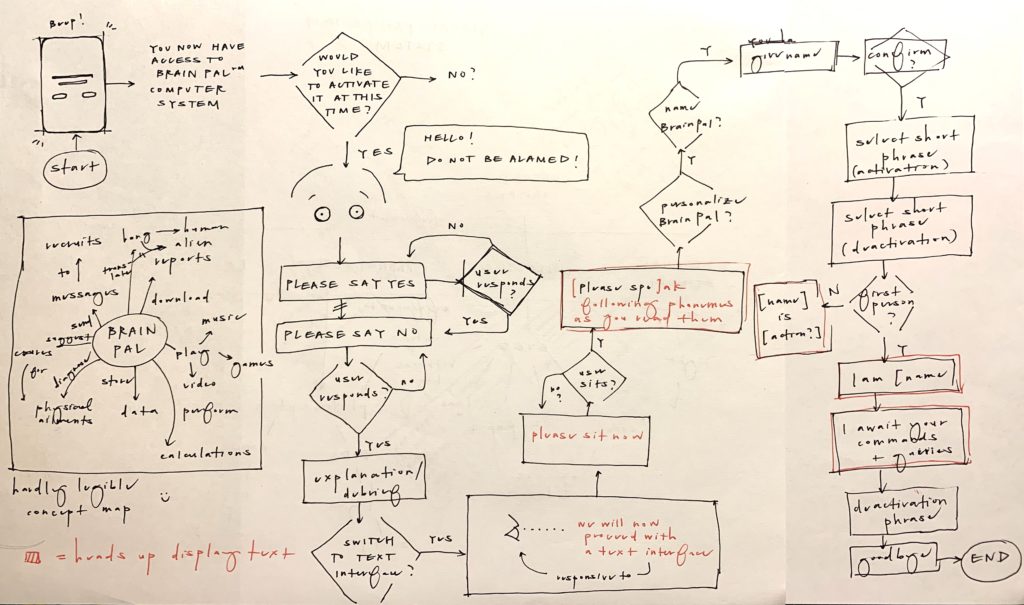 Boop!
start
YOU NOW HAVE
ACCESS TO
BRAIN PAL™
COMPUTER
SYSTEM
WOULD
YOU LIKE
TO ACTIVATE
IT AT THIS
TIME?
NO?
YES
HELLO!
DO NOT BE ALAMED!
PLEASE SAY YES
NO
user
responds
?
YES
PLEASE SAY NO
user
responds?
no
Yes
explanation/
debrief
SWITCH
TO TEXT
interface?
YES
we will now
proceed with
a text interface
responsive to
please sit now
no
?
user
sits?
Y
[please spe]ak
following phonemes
as you read them
personalize
BrainPal?
Y
name
Brainpal?
Y
give name
confirm
?
Y
select short
phrase
(activation)
select short
phrase
(deactivation)
first
person
?
N
[name]
is
[action?]
Y
I am [name
I await your
commands
+ queries
deactivation
phrase
goodbye
END
BRAIN
PAL
recruits
to
messages
send
trans-
late
human
alien
reports
download
music
play
games
video
perform
calculations
store
data
diagnose
physical
ailments
suggest
for
hardly legible
concept map
= heads up display text